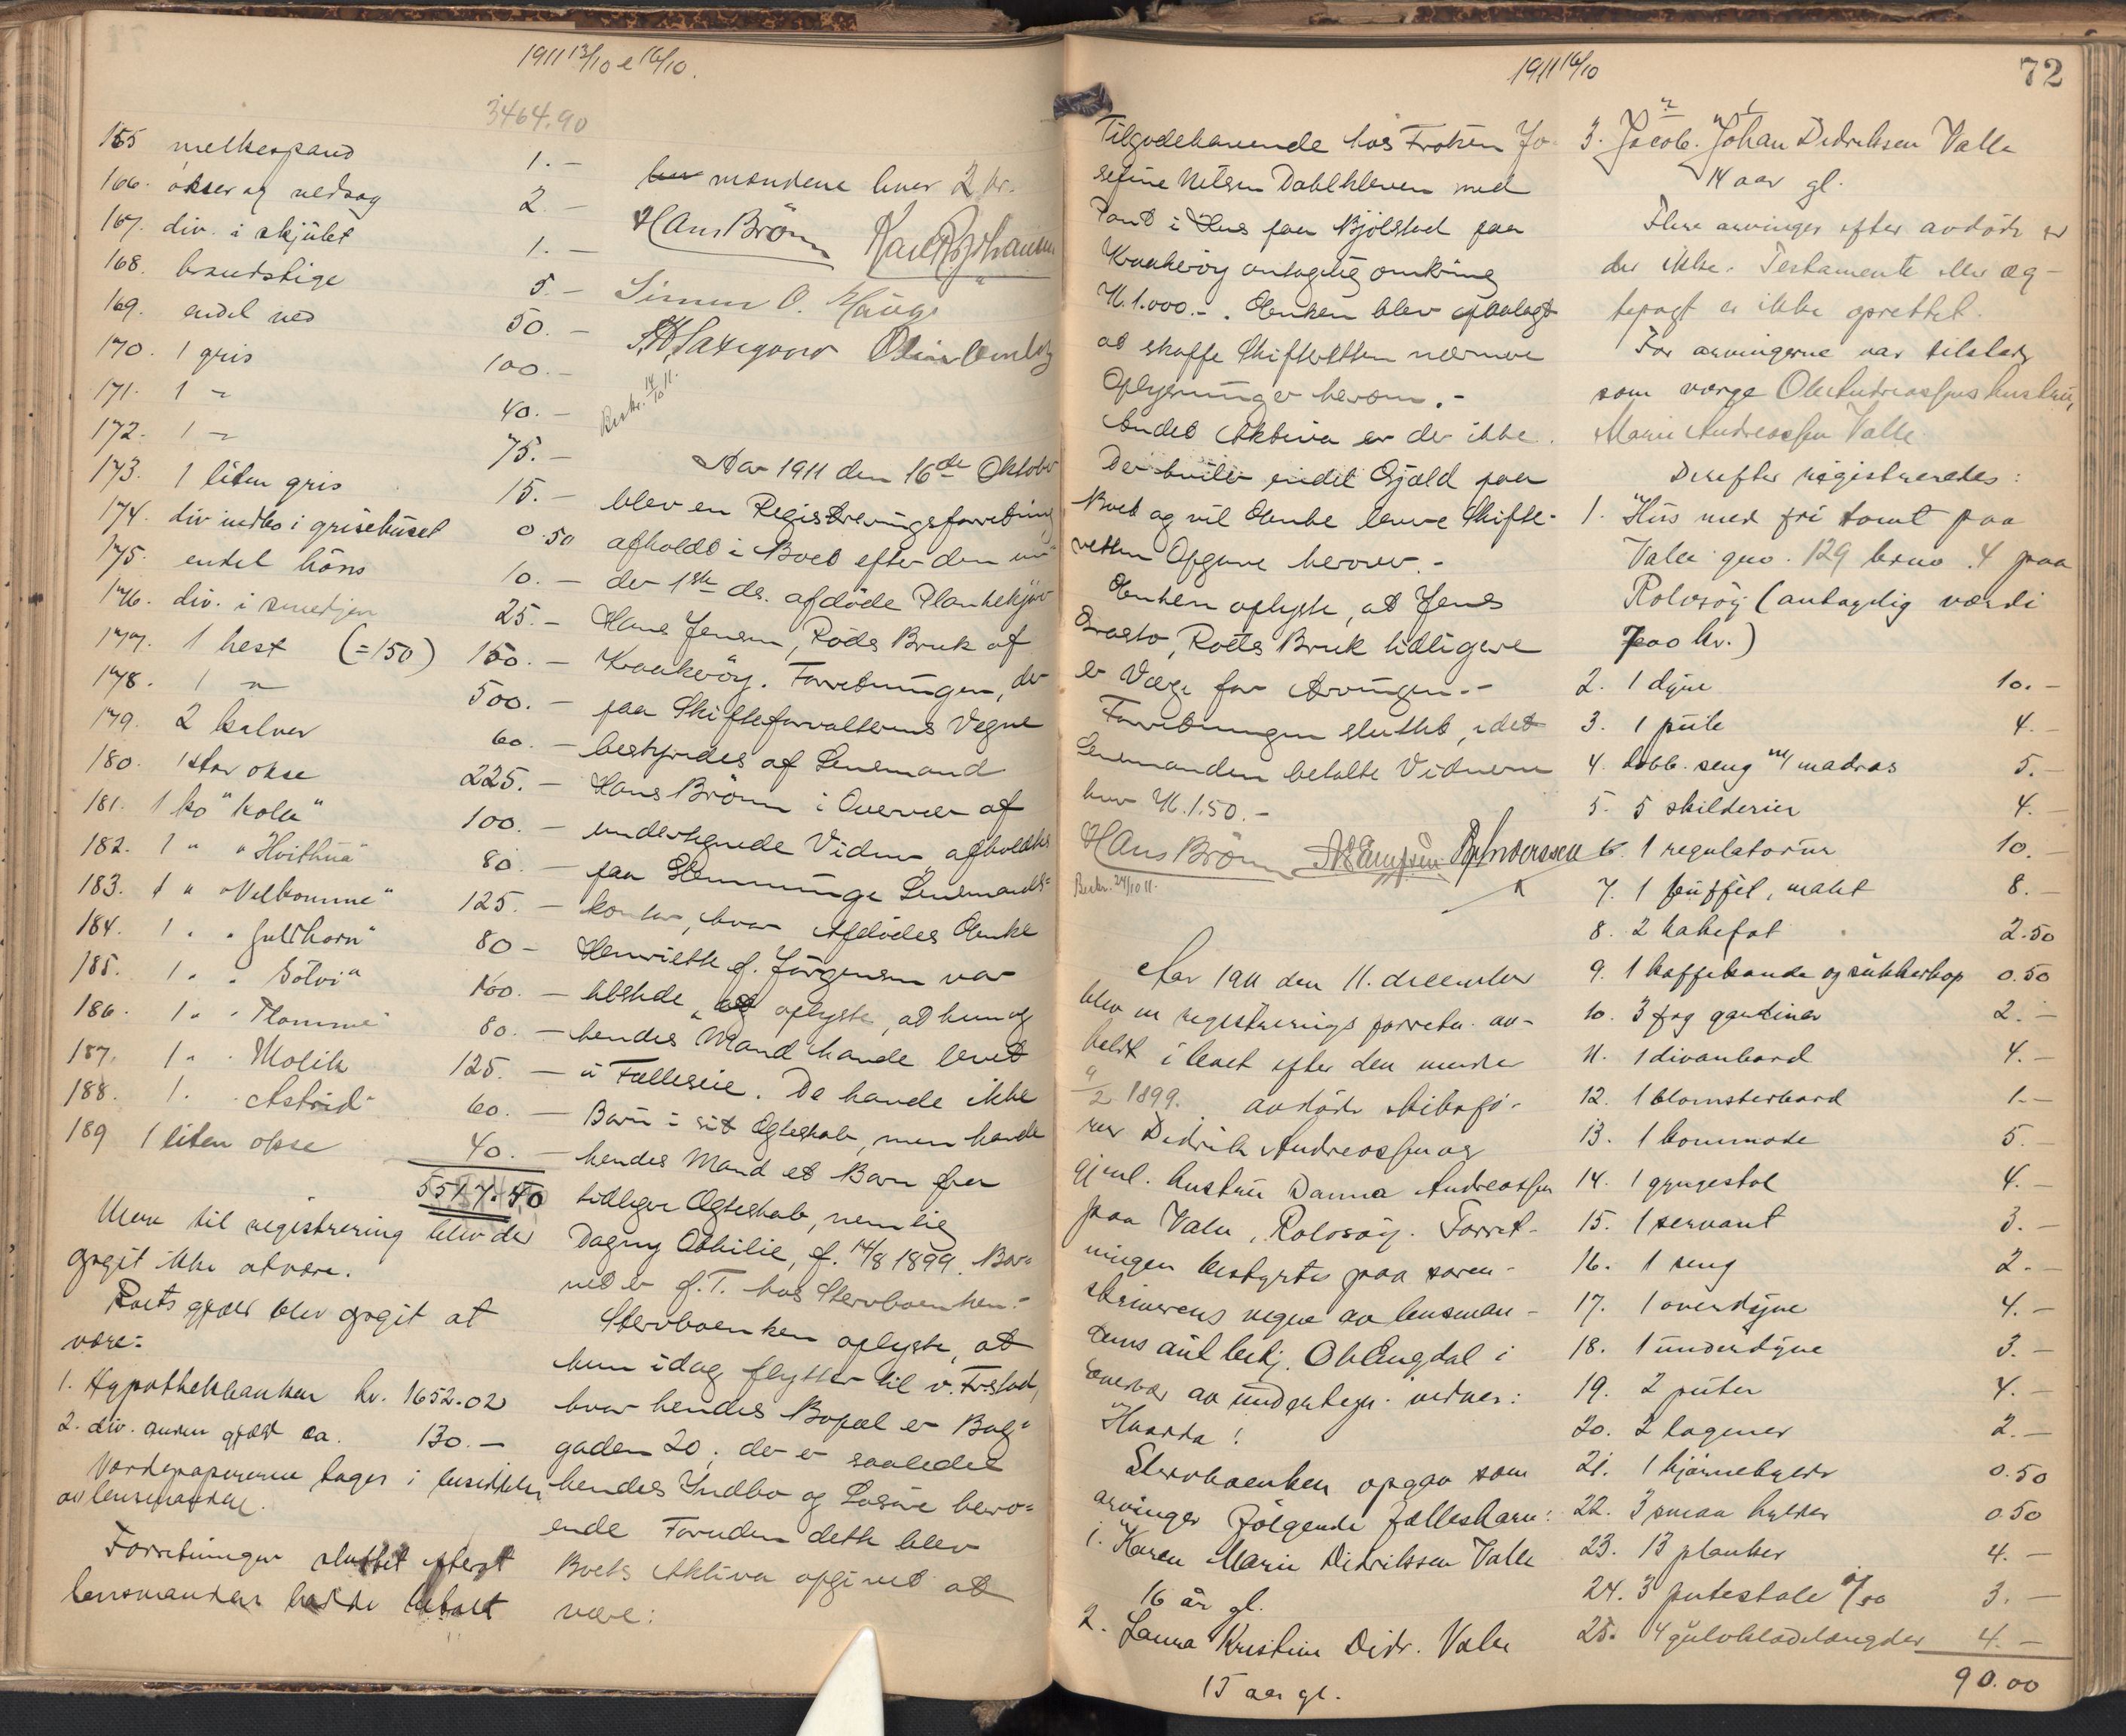 1911 13/10 & 16/10.
3464.90
165 melkespand 1.-
166. økser og vedsag 2.-
167. div. i skjulet 1.-
168. brandstige 5.-
169. endel ved 50.-
170. 1 gris 100.-
171. 1 " 40.-
172. 1 " 75.-
173. 1 liten gris 15.-
174. div indbo i grisehuset 0.50
175. endel høns 10.-
176. div. i smedjen 25.-
177. 1 hest (=150) 150.-
178. 1 " 500.-
179. 2 kalver 60.-
180. 1 stor okse 225.-
181. 1 ko "Kola" 100.-
182. 1 " "Hvithua" 80.-
183. 1 " "Velkomme" 125.-
184. 1 " "Gulhorn" 80-
185. 1 " "Sølvi" 100.-
186. 1 " "Flomme" 80.-
187. 1 " Molik 125.-
188. 1 " Astrid 60.-
189 1 liten okse 40.-
5517.40
Mere til registrering blev der
opgit ikke at være.
Boets gjæld blev opgit at
være:
1. Hypothekbanken kr. 1652.02
2. div. anden gjæld ca. 130.-
Værdipapirerne tages i besiddelse
av lensmanden.
Forretningen sluttet efterat
lensmanden hadde betalt
mændene hver 2 kr.
Hans Brønn
Simen O. Hauge
Beskr. 14/10 11.
Aar 1911 den 16de Oktober
blev en Registreringsforretning
afholdt i Boet efter den un-
der 1ste ds. afdøde Plankekjør
Hans Jensen, Røds Bruk af
Kraakerøy. Forretningen, der
paa Skifteforvalterens Vegne
bestyredes af Lensmand
Hans Brønn i Overvær af
undertegnede Vidner afholdtes
paa Glemminge Lensmands-
kontor, hvor Afdødes Enke
Henriette f. Jørgensen var
tilstede, og oplyste, at hun og
hendes Mand havde levet
i Fælleseie. De havde ikke
Barn i sit Ægteskab, men havde
hendes Mand et Barn fra
tidligere Ægteskab, nemlig
Dagny Othilie, f. 14/8 1899. Bar-
net er f. T. hos Stervboenken.-
Stervboenken oplyste, at
hun idag flytter til v. Frstad,
hvor hendes Bopæl er Bag-
gaden 20, der er saaledes
hendes Indbo og Løsøre bero-
ende Foruden dette blev
Boets Aktiva opgivet at
være:
1911 16/10
72
Tilgodehavende hos Frøken Jo-
sefine Nilsen Dahlkleven med
Pant i Hus paa Bjølstad paa
Kraakerøy antagelig omkring
K. 1.000.-. Enken blev paalagt
at skaffe Skifteretten nærmere
Oplysninger herom.-
Andet Aktiva er der ikke.
Der hviler endel Gjæld paa
Boet og vil Enke levere Skifte-
retten Opgave herover.-
Enken oplyste, at Jens
Røds Bruk tidligere
er Værge for Arvingen.-
Forretningen sluttet, idet
Lensmanden betalte Vidnerne
hver K. 1.50.-
Hans Brønn
Beskr. 24/10 11.
Aar 1911 den 11. december
blev en registrerings forretn. av-
holdt i boet efter den under
9/2 1899. avdøde skibsfø-
rer Didrik Andreassen og
gjenl. hustru Danna Andreassen
paa Valle, Rolvsøy. Forret-
ningen bestyrtes paa soren-
skriverens vegne av lensman-
dens aut. betj. O. Engdal i
overvær av undertegn. vidner:
Hvorda!
Stervboenken opgav som
arvinger følgende fællesbarn:
1. Karen Marie Didriksen Valle
16 år gl.
2. Laura Kristine Didr. Valle
15 aar gl.
3. Jacob. Johan Didriksen Valle
14 aar gl.
Flere arvinger efter avdøde er
der ikke. Testamente eller æg-
tepagt er ikke oprettet.
For arvingerne var tilstede
som verge Ole Andreassens hustru,
Marie Andreassen Valle
Derefter registreredes:
1. Hus med fri tomt paa
Valle gno. 129 brno. 4 paa
Rolvsøy (antagelig værdi
700 kr.)
2. 1 dyne 10.-
3. 1 pute 4.-
4. dobb. seng m/ madras 5.-
5. 5 skilderier 4.-
6. 1 regulatorur 10.
7. 1 buffet, malt 8.-
8. 2 kakefat 2.50
9. 1 kaffekande og sukkerkop 0.50
10. 3 fag gardiner 2.-
11. 1 divanbord 4.-
12. 1 blomsterbord 1.-
13. 1 kommode 5.-
14. 1 gyngestol 4.-
15. 1 servant 3.-
16. 1 seng 2.-
17. 1 overdyne 4.-
18. 1 underdyne 3.-
19. 2 puter 4.-
20. 2 lagener 2.-
21. 1 hjørnehylde 0.50
22. 3 smaa hylder 0.50
23. 13 planker 4.-
24. 3 putestole 3.-
25. 4 gulvklædelængder 4.-
90.00